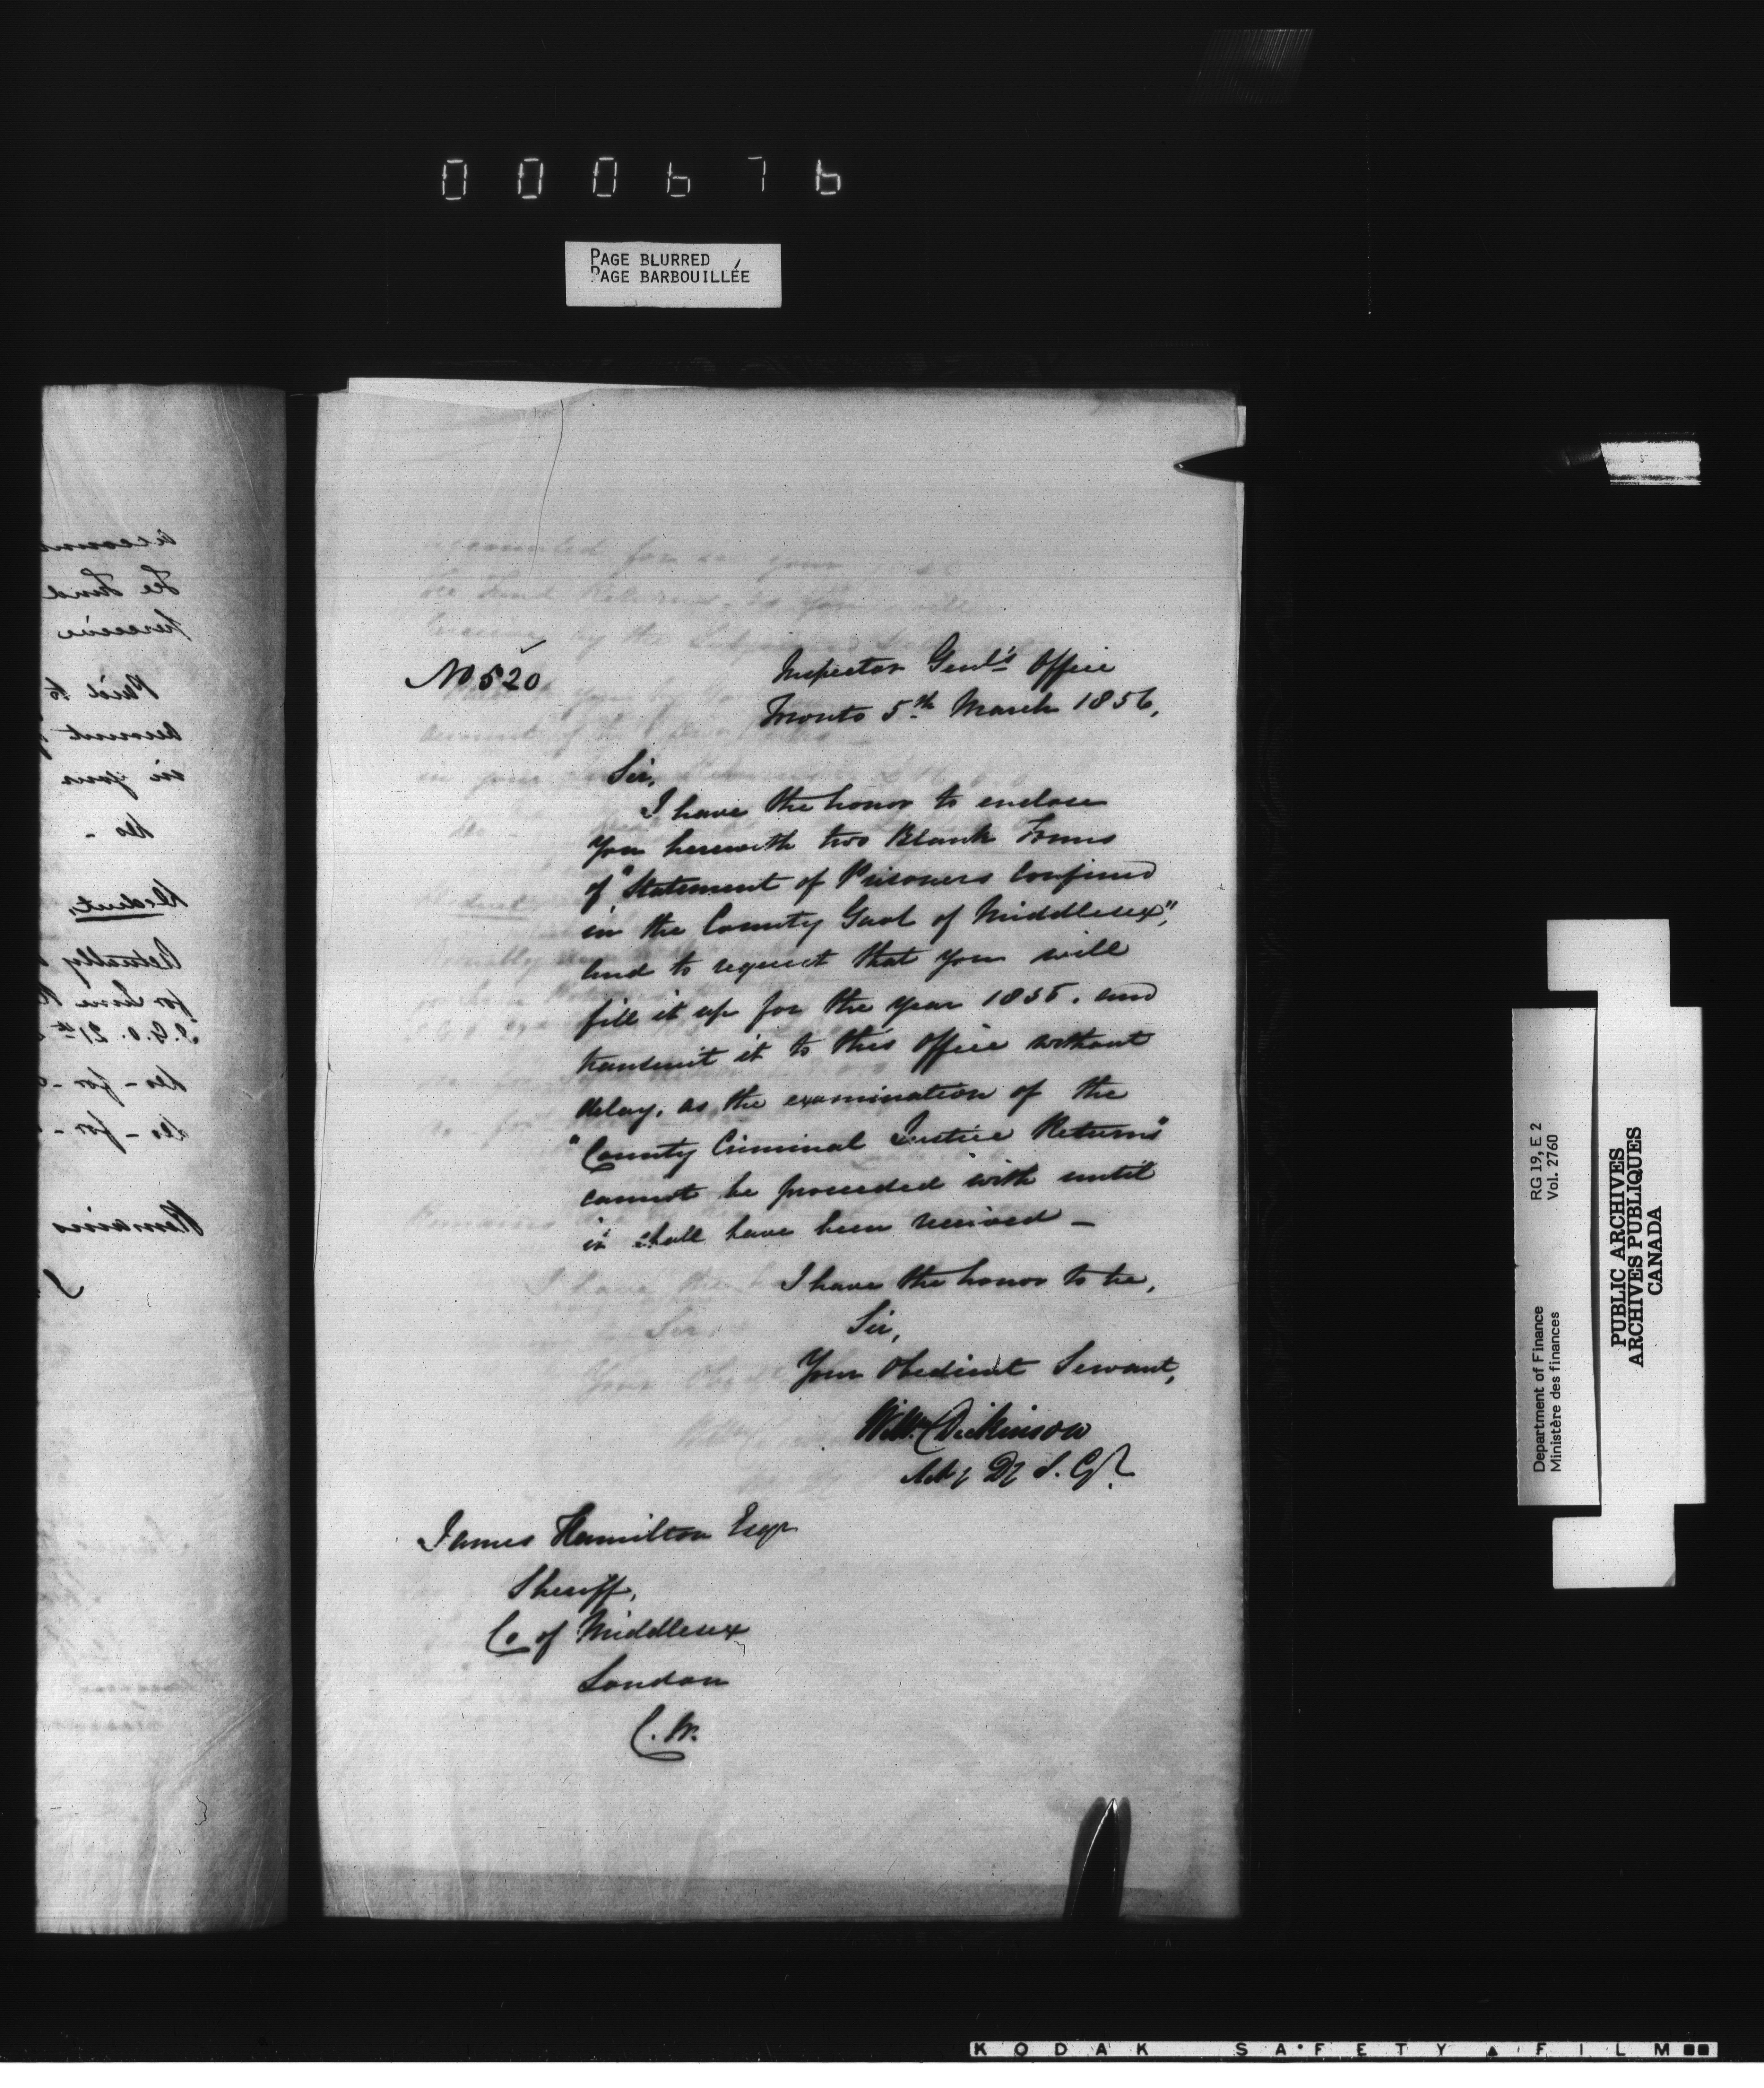 000676
PAGE BLURRED
PAGE BARBOUILLÉE
No 520
Inspector Genl's Office
Toronto 5th March 1856,
Sir,
I have the honor to enclose
you herewith two Blank Forms
of "Statement of Prisoners confined
in the County Gaol of Middlesex",
and to request that you will
fill it up for the year 1855. and
transmit it to this Office without
delay, as the examination of the
"County Criminal Justice Returns"
cannot be proceeded with until
it shall have been received —
I have the honor to be,
Sir,
Your Obedient Servant,
Willm Dickinson
Actg Dy I. Gl.
James Hamilton Esqr
Sheriff,
Co of Middlesex
London
C. W.
accoun
Fee Fund
perceive
Paid to
account of
in your
do -
Deduct,
Actually
for June
I.G.O. 21st
do - for -
do - for -
Remains
RG 19, E 2
Vol. 2760
Department of Finance
Ministère des finances
PUBLIC ARCHIVES
ARCHIVES PUBLIQUES
CANADA
KODAK SAFETY FILM